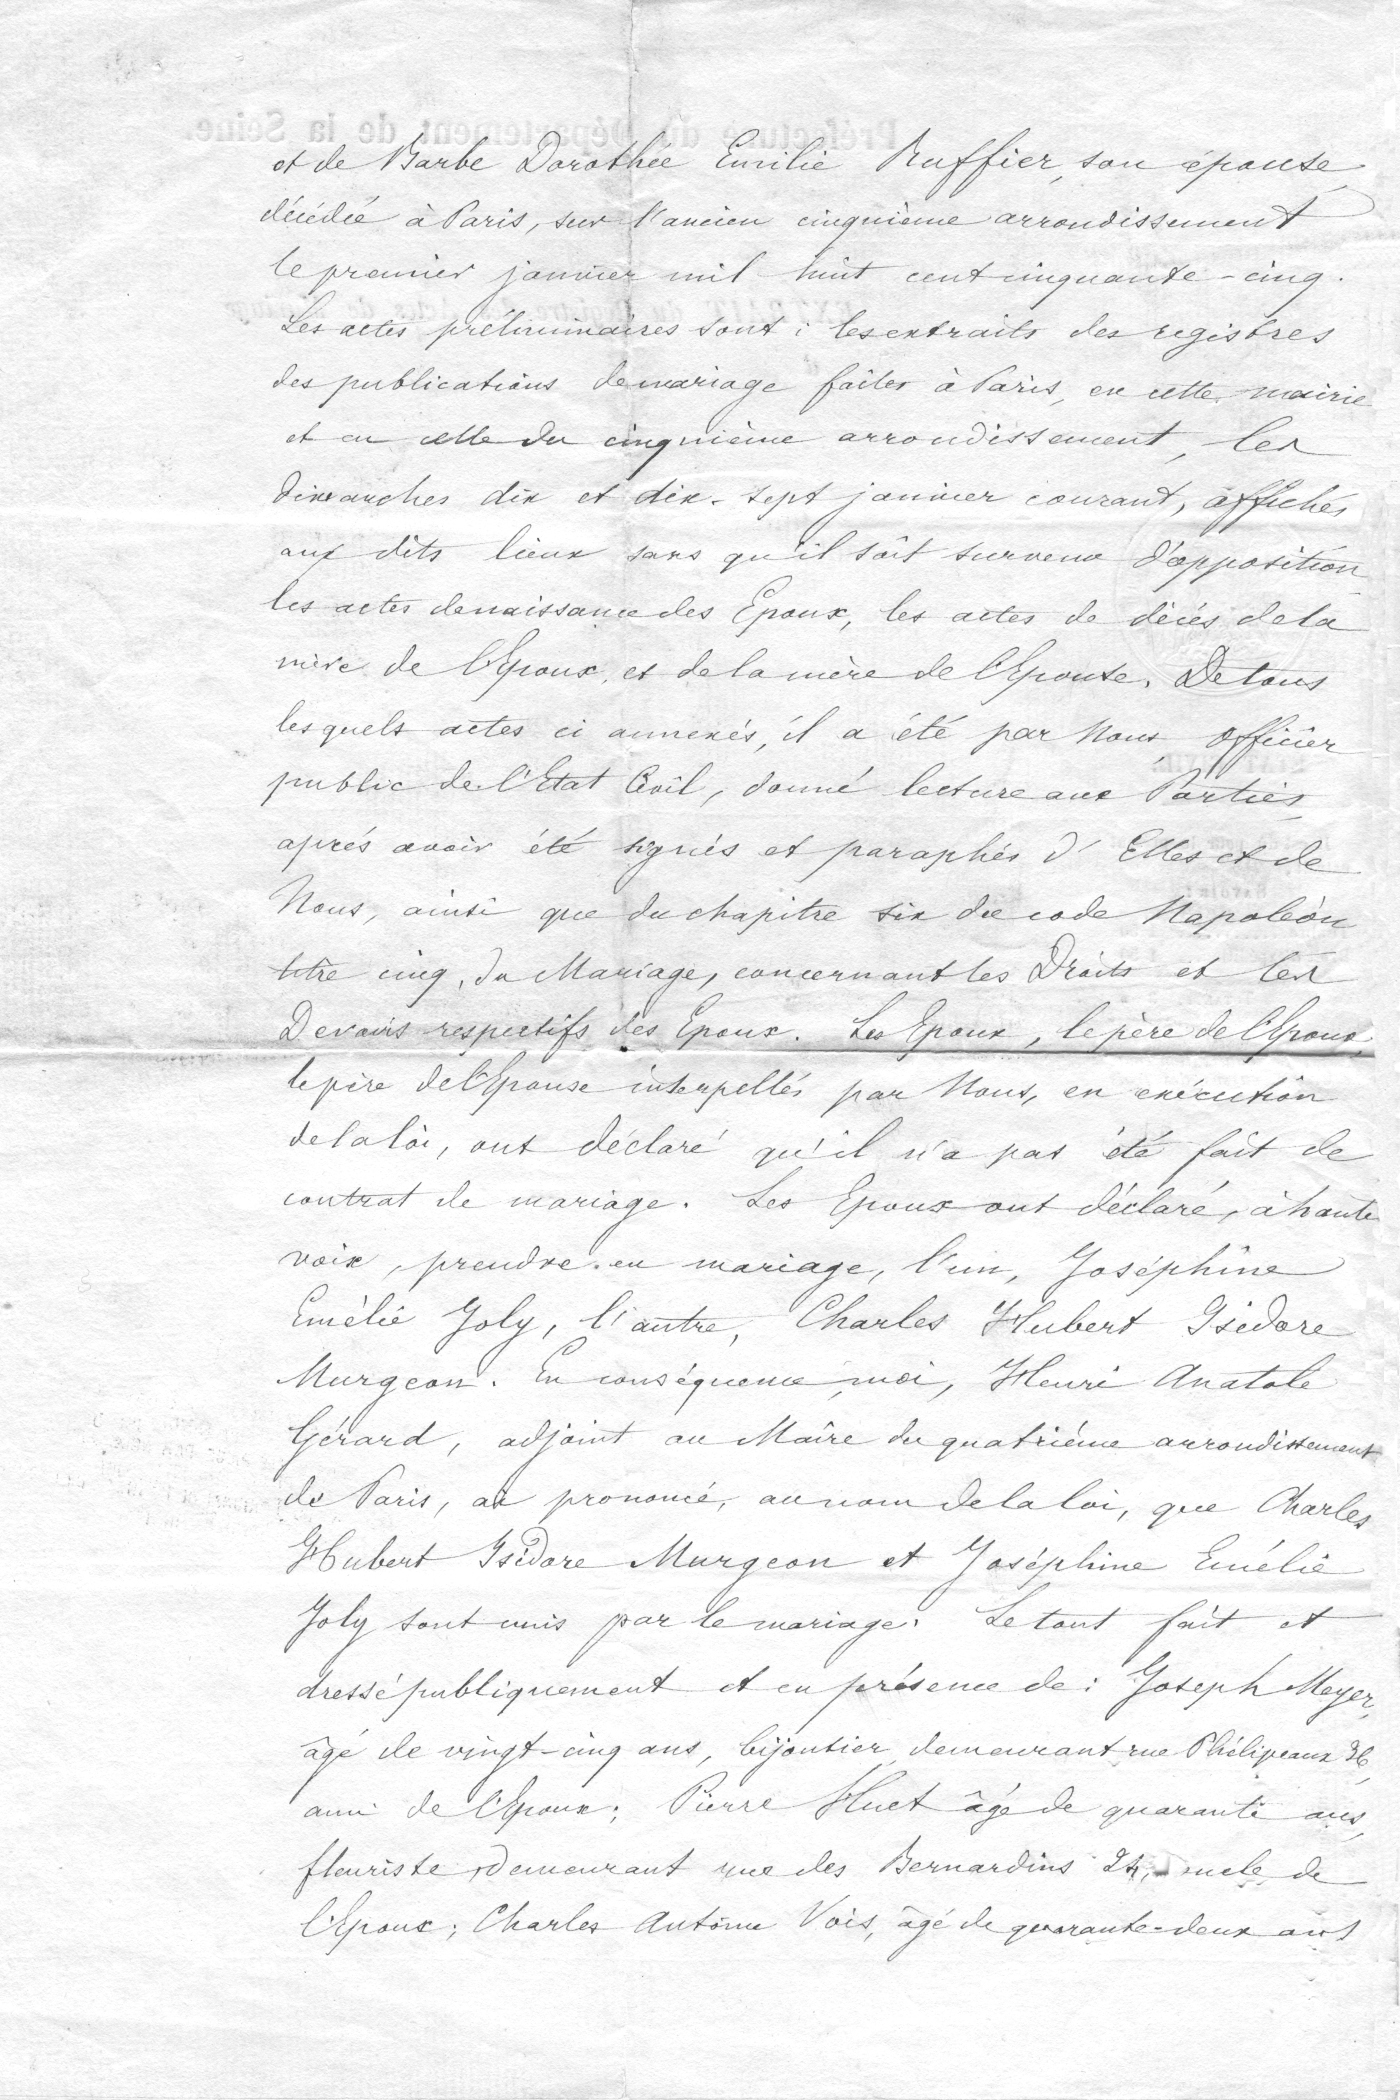 et de Barbe Dorothée Emilie Ruffier, son épouse
décédée à Paris, sur l'ancien cinquième arrondissement
le premier janvier mil huit cent cinquante-cinq.
Les actes préliminaires sont : les extraits des registres
des publications de mariage faites à Paris, en cette mairie
et en celle du cinquième arrondissement, les
dimanches dix et dix-sept janvier courant, affichés
aux dits lieux sans qu'il soit survenu d'opposition
les actes de naissance des Epoux, les actes de décés de la
mère de l'Epoux, et de la mère de l'Epouse. De tous
lesquels actes ci annexés, il a été par Nous Officier
public de l'Etat Civil, donné lecture aux Parties
aprés avoir été signés et paraphés d'Elles et de
Nous, ainsi que du chapitre six du code Napoléon
titre cinq, du Mariage, concernant les Droits et les
Devoirs respectifs des Epoux. Les Epoux, le père de l'Epoux,
le père de l'Epouse interpellés par Nous, en exécution
de la loi, ont déclaré qu'il n'a pas été fait de
contrat de mariage. Les Epoux ont déclaré, à haute
voix, prendre en mariage, l'un, Joséphine
Emélie Joly, l'autre, Charles Hubert Isidore
Murgeon. En conséquence, moi, Henri Anatole
Gérard, adjoint au Maire du quatrième arrondissement
de Paris, ai prononcé, au nom de la loi, que Charles
Hubert Isidore Murgeon et Joséphine Emélie
Joly sont unis par le mariage. Le tout fait et
dressé publiquement et en présence de : Joseph Meyer,
âgé de vingt-cinq ans, bijoutier, demeurant rue Phélipeaux 36,
ami de l'Epoux ; Pierre Huet âgé de quarante ans,
fleuriste, demeurant rue des Bernardins 24, oncle de
l'Epoux ; Charles Antoine Vois, âgé de quarante-deux ans
Préfecture du Département de la Seine.